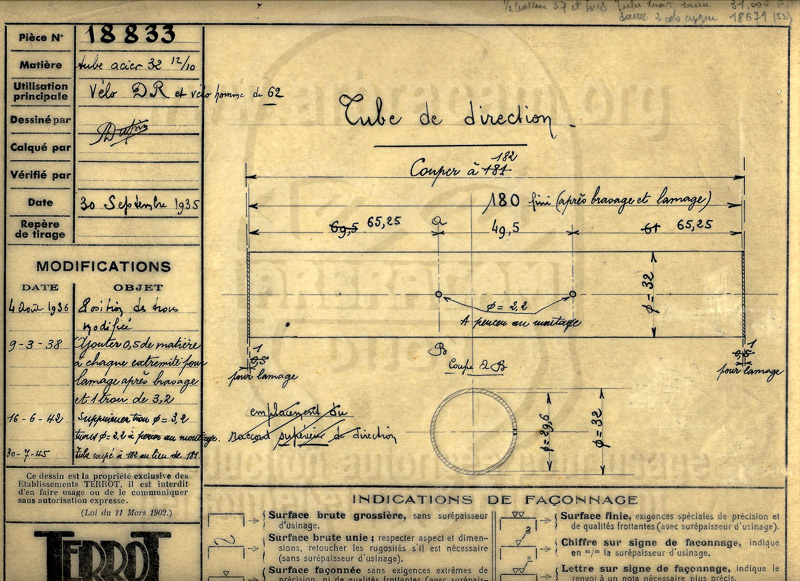 31.000
18671 (52)
Pièce N° 18833
Matière tube acier 32 12/10
Utilisation principale Vélo DR et vélo homme de 62
Dessiné par
Calqué par
Vérifié par
Date 30 Septembre 1935
Repère de tirage
MODIFICATIONS
DATE OBJET
4 Août 1936 Position des trous
modifiée
9-3-38 Ajouter 0,5 de matière
à chaque extremité pour
lamage après bravage
et 1 trou de 3,2
16-6-42 Supprimer trou ø = 3,2
trous ø = 2,2 à percer au montage.
30-7-45 Tube coupé à 182 au lieu de 181
Ce dessin est la propriété exclusive des
Etablissements TERROT, il est interdit
d'en faire usage ou de le communiquer
sans autorisation expresse.
(Loi du 11 Mars 1902.)
TERROT
Tube de direction
182
Couper à 181
180 fini (après bravage et lamage)
69,5 65,25 a 49,5 61 65,25
ø = 32
ø = 2,2
A percer au montage
B
1
0,5
pour lamage
1
0,5
pour lamage
Coupe a B
emplacement du
raccord supérieur de direction
ø = 29,6
ø = 32
INDICATIONS DE FAÇONNAGE
Surface brute grossière, sans surépaisseur
d'usinage.
Surface brute unie ; respecter aspect et dimen-
sions, retoucher les rugosités s'il est nécessaire
(sans surépaisseur d'usinage).
Surface façonnée sans exigences extrêmes de
précision, ni de qualités frottantes (avec surépais-
Surface finie, exigences spéciales de précision et
de qualités frottantes (avec surépaisseur d'usinage).
Chiffre sur signe de façonnage, indique
en m/m la surépaisseur d'usinage.
Lettre sur signe de façonnage, indique le
renvoi à un nota nécessaire plus précis.